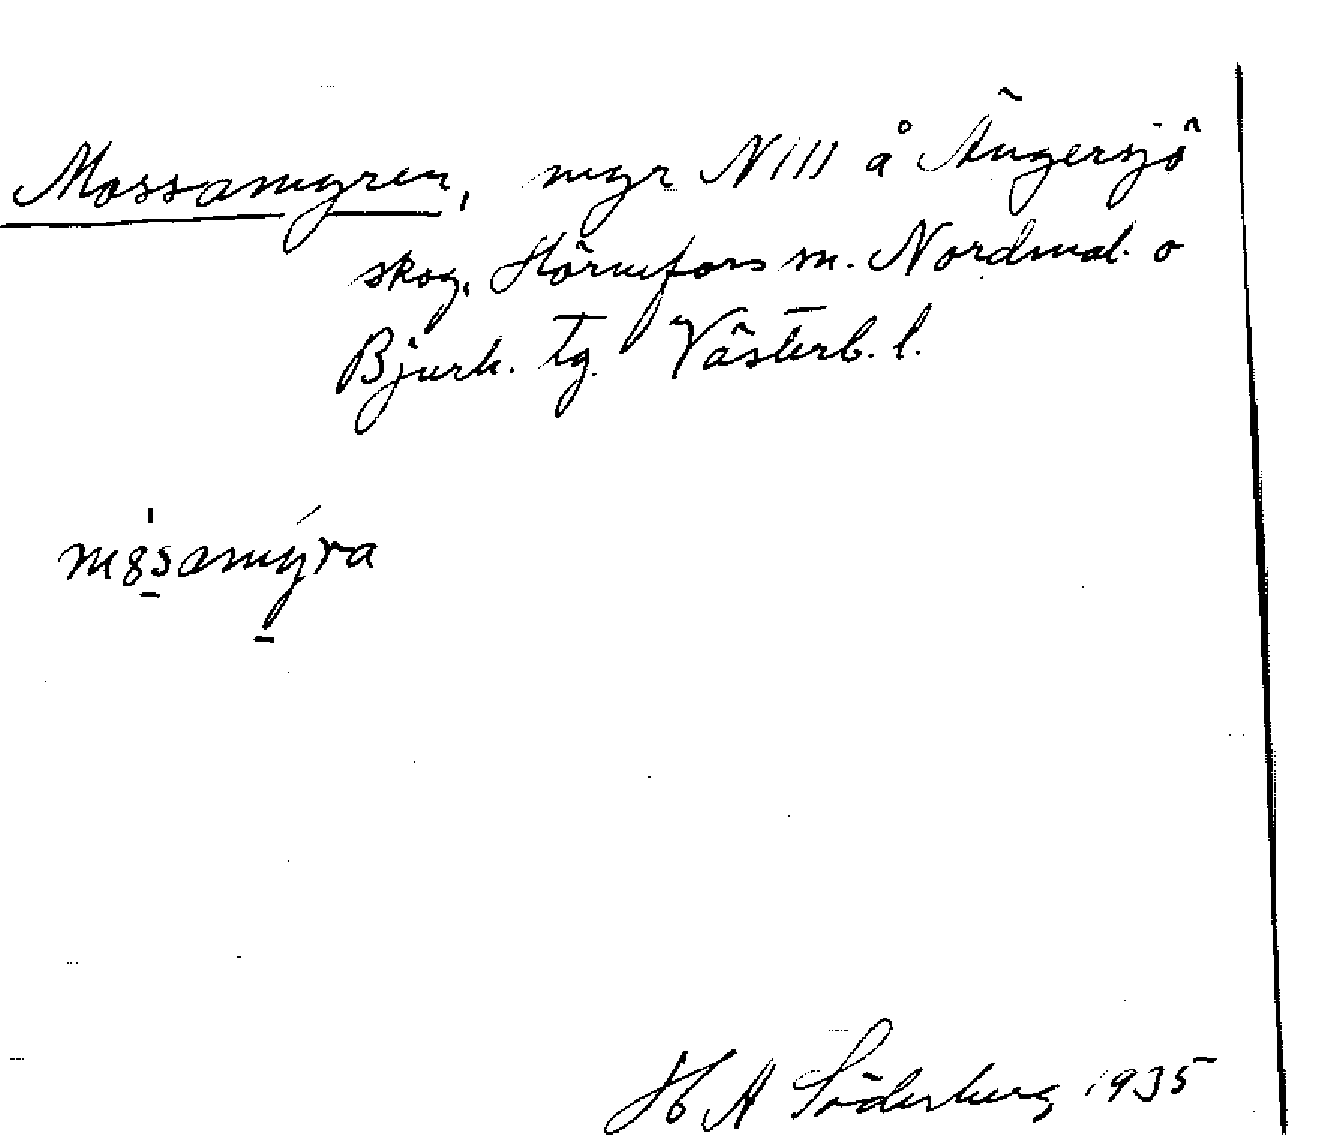 Mossamyren, myr N 111 å Ängersjö
skog, Hörnefors sn. Nordmal. o
Bjurh. tg. Västerb. l.
m8samýra
H A Söderberg 1935